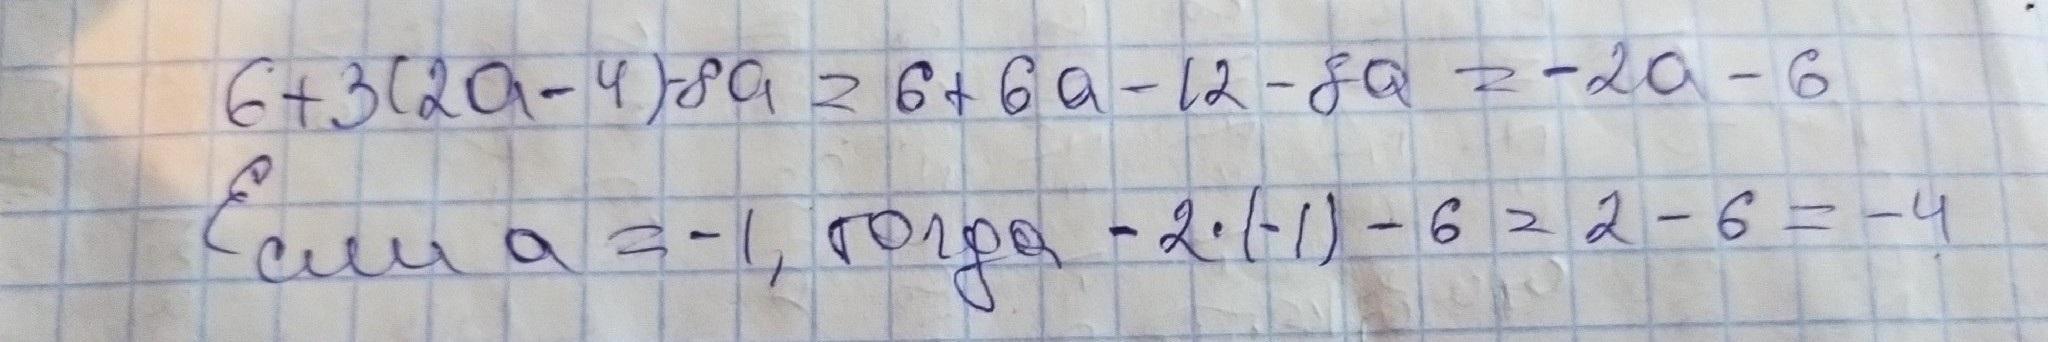 6+3(2a-4)-8a = 6+6a-12-8a = -2a-6
Если a = -1, тогда -2·(-1)-6 = 2-6 = -4